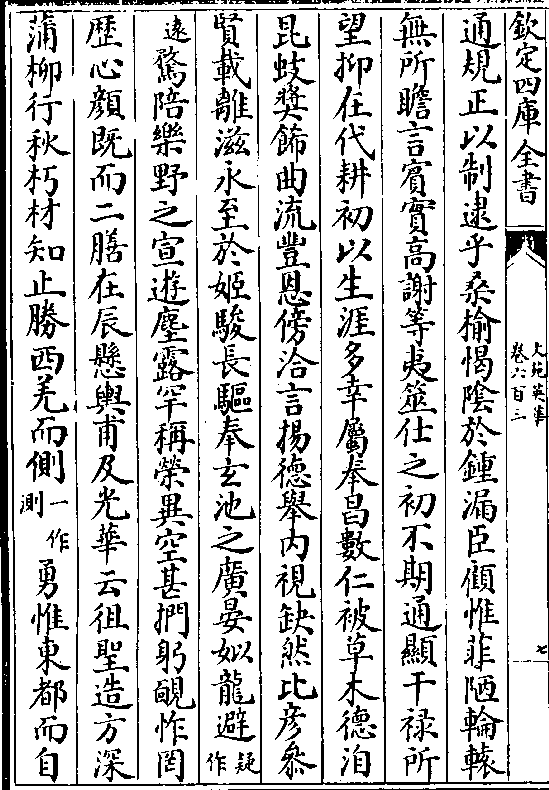 欽定四庫全書
文苑英華
卷六百三
七
通規正以制逮乎桑榆愒陰於鍾漏臣顧惟菲陋輪轅
無所瞻言賔實高謝等夷筮仕之初不期通顯干禄所
望抑在代耕初以生涯多幸屬奉昌數仁被草木德洎
昆蚑奬飾曲流豐恩傍洽言揚德舉内視缺然比彦叅
賢載離滋永至於姬駿長驅奉玄池之廣晏如龍避疑作
遠騖陪樂野之宣遊塵露罕稱榮異空甚捫躬靦怍罔
歴心顔既而二膳在辰懸輿甫及光華云徂聖造方深
蒲柳行秋朽材知止勝西羌而側一作測勇惟東都而自